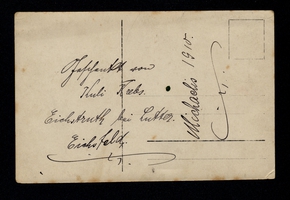 Geschenkt von
Krebs.
Eichstruth bei Lutter.
Eichsfeld.
Michaelis 1910.